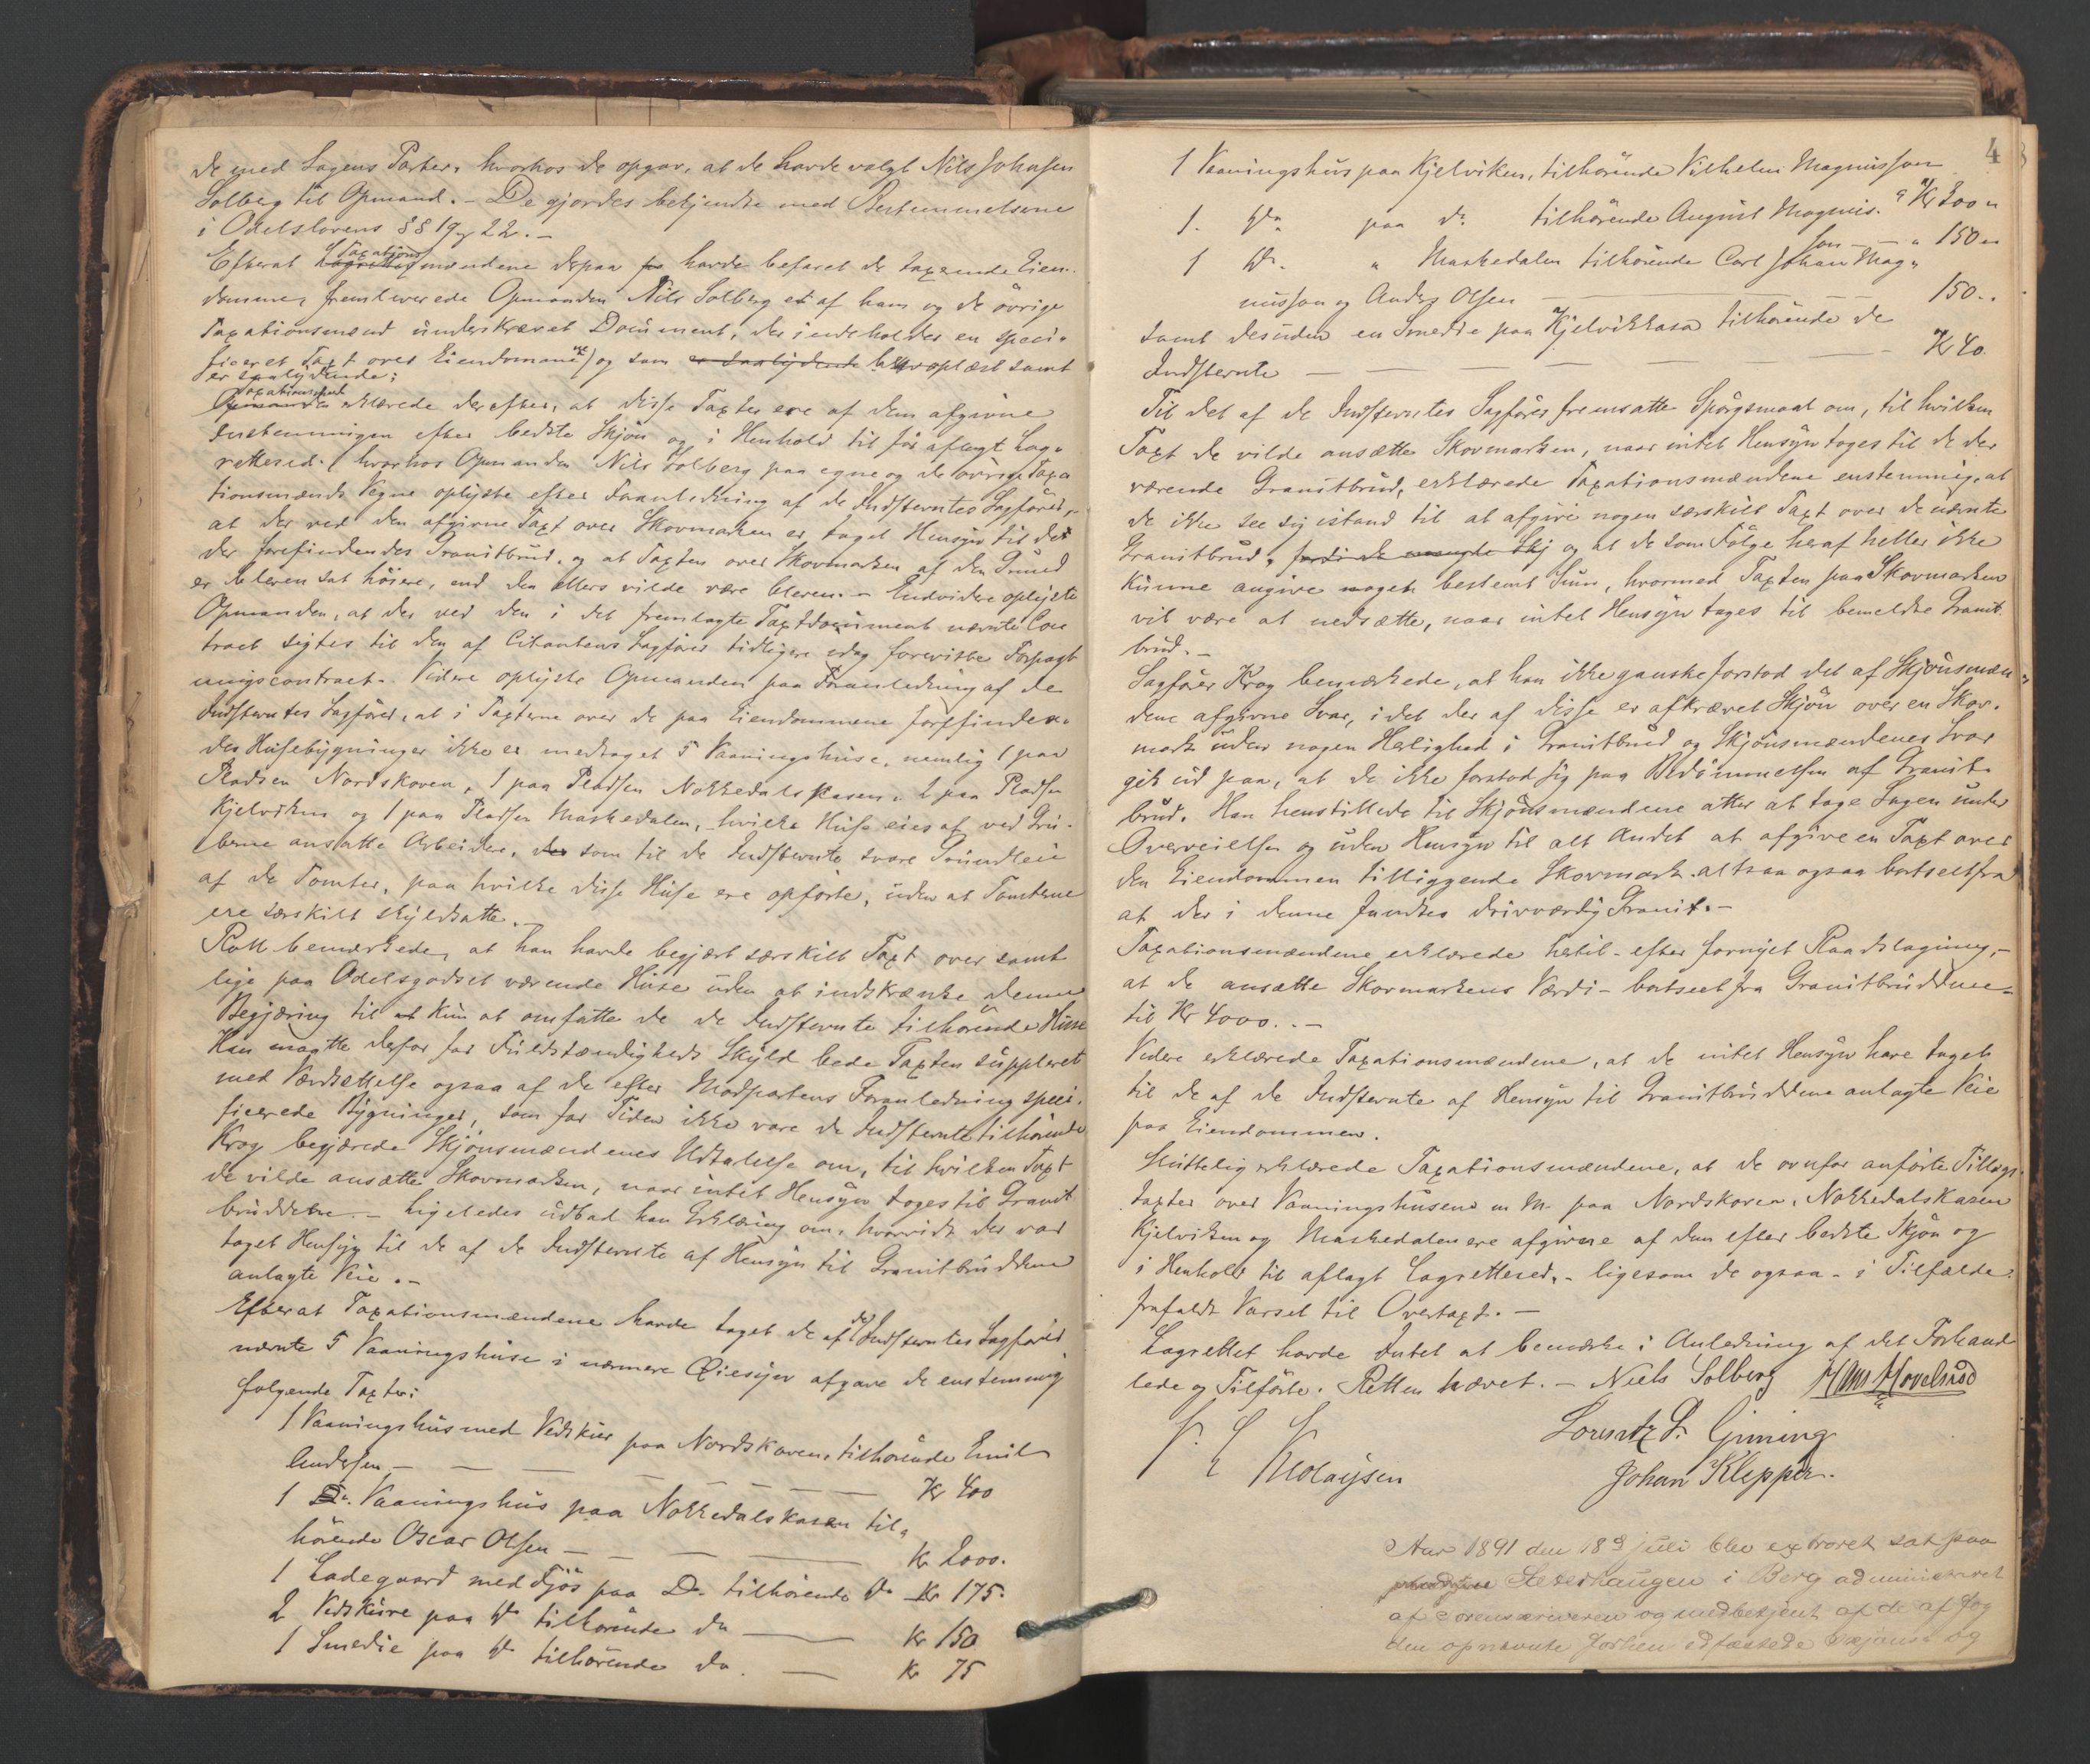 de med Sagens Parter, hvorhos de opgav, at de havde valgt Nils Johnsen
Solberg til Opmand. - De gjordes bekjendte med Bestemmelserne
i Odelslovens §§ 19 og 22. -
Taxations
Efterat mændene derpaa havde befaret de taxerende Eien-
domme, fremleverede Opmanden Nils Solberg et af ham og de øvrige
Taxationsmænd underskrevet Document, der indeholder en speci-
ficeret Taxt over Eiendommene) og som oplæst samt
er saalydende:
Taxationsmænd
erklærede derefter, at disse Taxter ere af dem afgivne
enstemmigen efter bedste Skjøn og i Henhold til før aflagt Lag-
rettesed, hvorhos Opmanden Nils Solberg paa egne og de øvrige Taxa
tionsmænds Vegne oplyste efter Foranledning af de Indstevntes Sagfører,
at der ved den afgivne Taxt over Skovmarken er taget Hensyn til det
der forefindendes Granitbrud, og at Taxten over Skovmarken af den Grund
er bleven sat høiere, end den ellers vilde være bleven. - Endvidere oplyste
Opmanden, at der ved den i det fremlagte Taxtdocument nævnte Con
tract sigtes til den af Citantens Sagfører tidligere idag foreviste Forpagt
ningscontract. Videre oplyste Opmanden paa Foranledning af de
Indstevntes Sagfører, at i Taxterne over de paa Eiendommene forefinden-
des Husebygninger ikke er medtaget 5 Vaaningshuse, nemlig 1 paa
Pladsen Nordskoven, 1 paa Pladsen Nokkedalskasen, 2 paa Pladsen
Kjelviken og 1 paa Pladsen Maskedalen, hvilke Huse eies af ved Gru-
berne ansatte Arbeidere, der som til de Indstevnte svare Grundleie
af de Tomter, paa hvilke disse Huse ere opførte, uden at Tomterne
ere særskilt skyldsatte. -
Roll bemærkede, at han havde begjært særskilt Taxt over samt
lige paa Odelsgodset værende Huse uden at indskrænke denne
Begjæring til at kun at omfatte de de Indstevnte tilhørende Huse
Han maatte derfor for Fuldstændigheds Skyld bede Taxten suppleret
med Værdsættelse ogsaa af de efter Modpartens Foranledning speci-
ficerede Bygninger, som for Tiden ikke vare de Indstevnte tilhørende
Krog begjærede Skjønsmændenes Udtalelse om, til hvilken Taxt
de vilde ansætte Skovmarken, naar intet Hensyn toges til Granit
bruddene. - Ligeledes udbad han Erklæring om, hvorvidt der var
taget Hensyn til de af de Indstevnte af Hensyn til Granitbruddene
anlagte Veie. -
Efterat Taxationsmændene havde taget de af de Indstevntes Sagfører
nævnte 5 Vaaningshuse i nærmere Øiesyn afgave de enstemmig
følgende Taxter:
1 Vaaningshus med Vedskur paa Nordskoven, tilhørende Emil
Andersen - - - - - Kr 400
1 Vaaningshus paa Nokkedalskasen til-
hørende Oscar Olsen - - - - Kr 2000.
1 Ladegaard med Fjøs paa Do tilhørende Do Kr 175.
2 Vedskure paa Do tilhørende Do - Kr 150
1 Smedie paa Do tilhørende Do. - Kr 75
4
1 Vaaningshus paa Kjelviken, tilhørende Vilhelm Magnusson
Kr 200 "
1. Do paa do tilhørende August Magnus-
son - - " 150 "
1 Do. " Maskedalen tilhørende Carl Johan Mag-
nusson og Anders Olsen - 150 "
samt desuden en Smedie paa Kjelvikkasa tilhørende de
Indstevnte - - - - - Kr 40.
Til det af de Indstevntes Sagfører fremsatte Spørgsmaal om, til hvilken
Taxt de vilde ansætte Skovmarken, naar intet Hensyn toges til de der
værende Granitbrud, erklærede Taxationsmændene enstemmig, at
de ikke see sig istand til at afgive nogen særskilt Taxt over de nævnte
Granitbrud, fordi de mangle Skj og at de som Følge heraf heller ikke
kunne angive noget bestemt Sum, hvormed Taxten paa Skovmarken
vil være at nedsætte, naar intet Hensyn tages til bemeldte Granit
brud. -
Sagfører Krog bemærkede, at han ikke ganske forstod det af Skjønsmæn-
dene afgivne Svar, idet der af disse er afkrævet Skjøn over en Skov-
mark uden nogen Herlighed i Granitbrud og Skjønsmændenes Svar
gik ud paa, at de ikke forstod sig paa Bedømmelsen af Granit-
brud. Han henstillede til Skjønsmændene atter at tage Sagen under
Overveielse og uden Hensyn til alt Andet at afgive en Taxt over
den Eiendommen tilliggende Skovmark, altsaa ogsaa bortseet fra
at der i denne fandtes drivværdig Granit. -
Taxationsmændene erklærede hertil - efter fornyet Raadslagning, -
at de ansætte Skovmarkens Værdi - bortseet fra Granitbruddene -
til Kr 4000. . -
Videre erklærede Taxationsmændene, at de intet Hensyn have taget
til de af de Indstevnte af Hensyn til Granitbruddene anlagte Veie
paa Eiendommen.
Sluttelig erklærede Taxationsmændene, at de ovnfor anførte Tillægs-
taxter over Vaaningshusene m M. paa Nordskoven, Nokkedalskasen
Kjelviken og Maskedalen ere afgivne af dem efter bedste Skjøn og
i Henhold til aflagt Lagrettesed, - ligesom de ogsaa - i Tilfælde -
frafaldt Varsel til Overtaxt. -
Lagrettet havde Intet at bemærke i Anledning af det Forhand
lede og Tilførte. Retten hævet. - Niels Solberg Hans Hovelsrød
Lorentz L. Grining
Nolaysen Johan Klepper.
Aar 1891 den 18de juli blev extraret sat paa
Sletterhaugen i Berg administreret
af sorenskriveren og medbetjent af de af fog
den opnævnte forhen edfæstede og